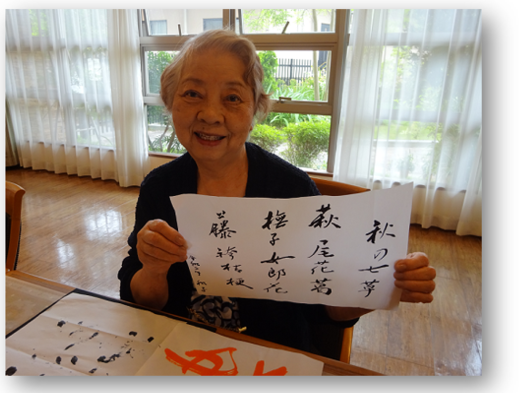 秋の七草
萩 尾花 葛
撫子 女郎花
藤袴 桔梗